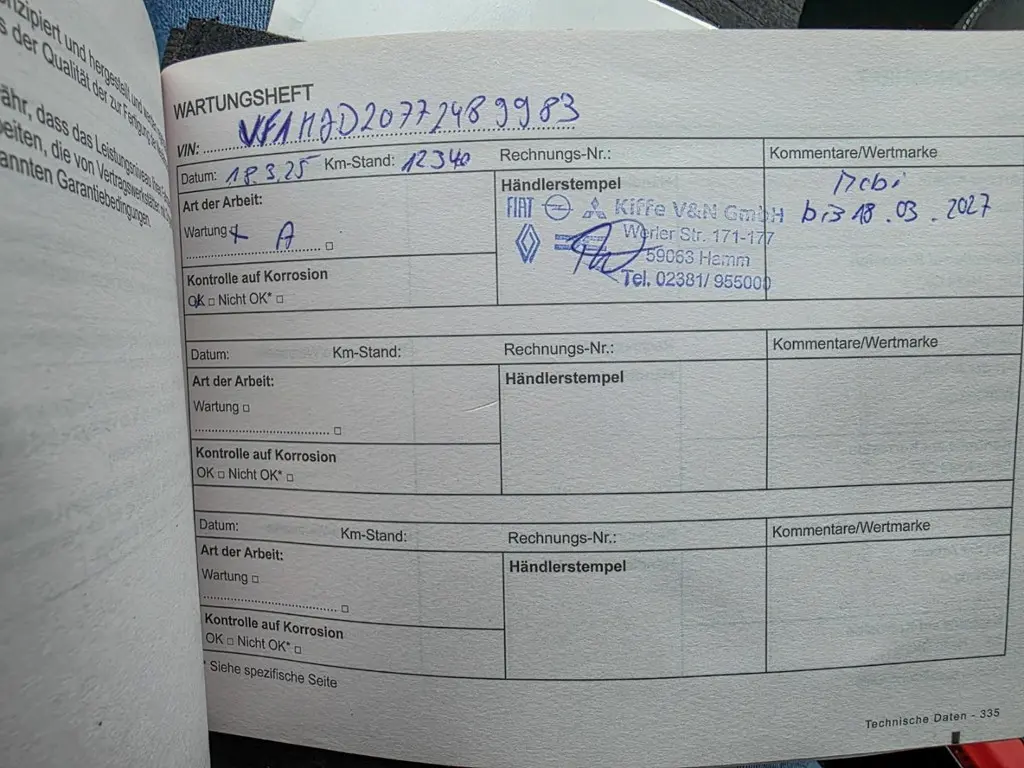 nzipiert und hergestellt und
s der Qualität der zur Fertigung der
ähr, dass das Leistungsniveau Ihres
eiten, die von Vertragswerkstätten
annten Garantiebedingungen.
WARTUNGSHEFT
VIN: VF1MJD20772489983
Datum: 18.3.25 Km-Stand: 12340 Rechnungs-Nr.: Kommentare/Wertmarke
Art der Arbeit:
Wartung A
Kontrolle auf Korrosion
OK □ Nicht OK* □
Händlerstempel
FIAT Kiffe V&N GmbH
Werler Str. 171-177
59063 Hamm
Tel. 02381/ 955000
Mobi
bis 18.03.2027
Datum: Km-Stand: Rechnungs-Nr.: Kommentare/Wertmarke
Art der Arbeit:
Händlerstempel
Wartung □
Kontrolle auf Korrosion
OK □ Nicht OK* □
Datum: Km-Stand: Rechnungs-Nr.: Kommentare/Wertmarke
Art der Arbeit:
Händlerstempel
Wartung □
Kontrolle auf Korrosion
OK □ Nicht OK* □
* Siehe spezifische Seite
Technische Daten - 335